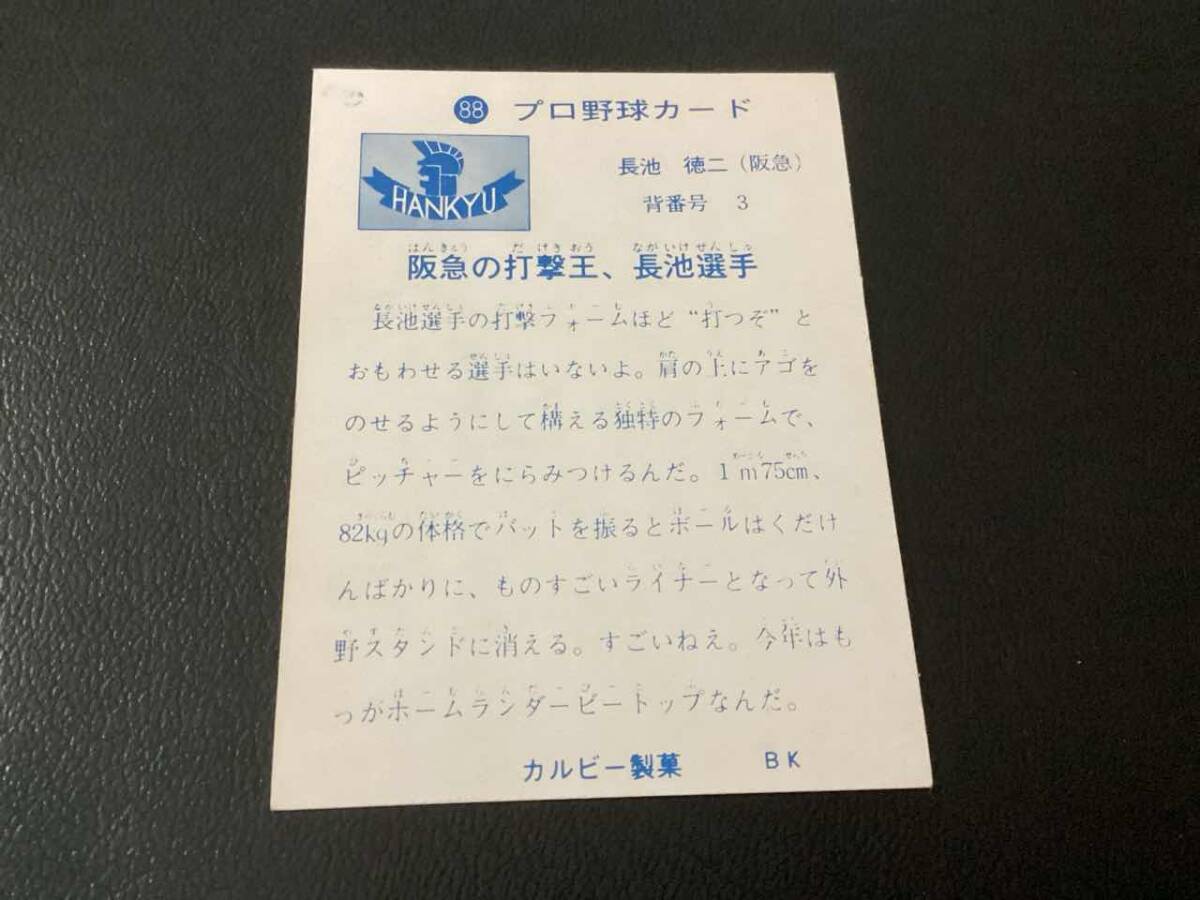 88 プロ野球カード
HANKYU
長池 徳二(阪急)
背番号 3
はんきゅう だげきおう ながいけせんしゅ
阪急の打撃王、長池選手
長池選手の打撃フォームほど“打つぞ”と
おもわせる選手はいないよ。肩の上にアゴを
のせるようにして構える独特のフォームで、
ピッチャーをにらみつけるんだ。1m75cm、
82kgの体格でバットを振るとボールはくだけ
んばかりに、ものすごいライナーとなって外
野スタンドに消える。すごいねえ。今年はも
っかホームランダービートップなんだ。
カルビー製菓 BK